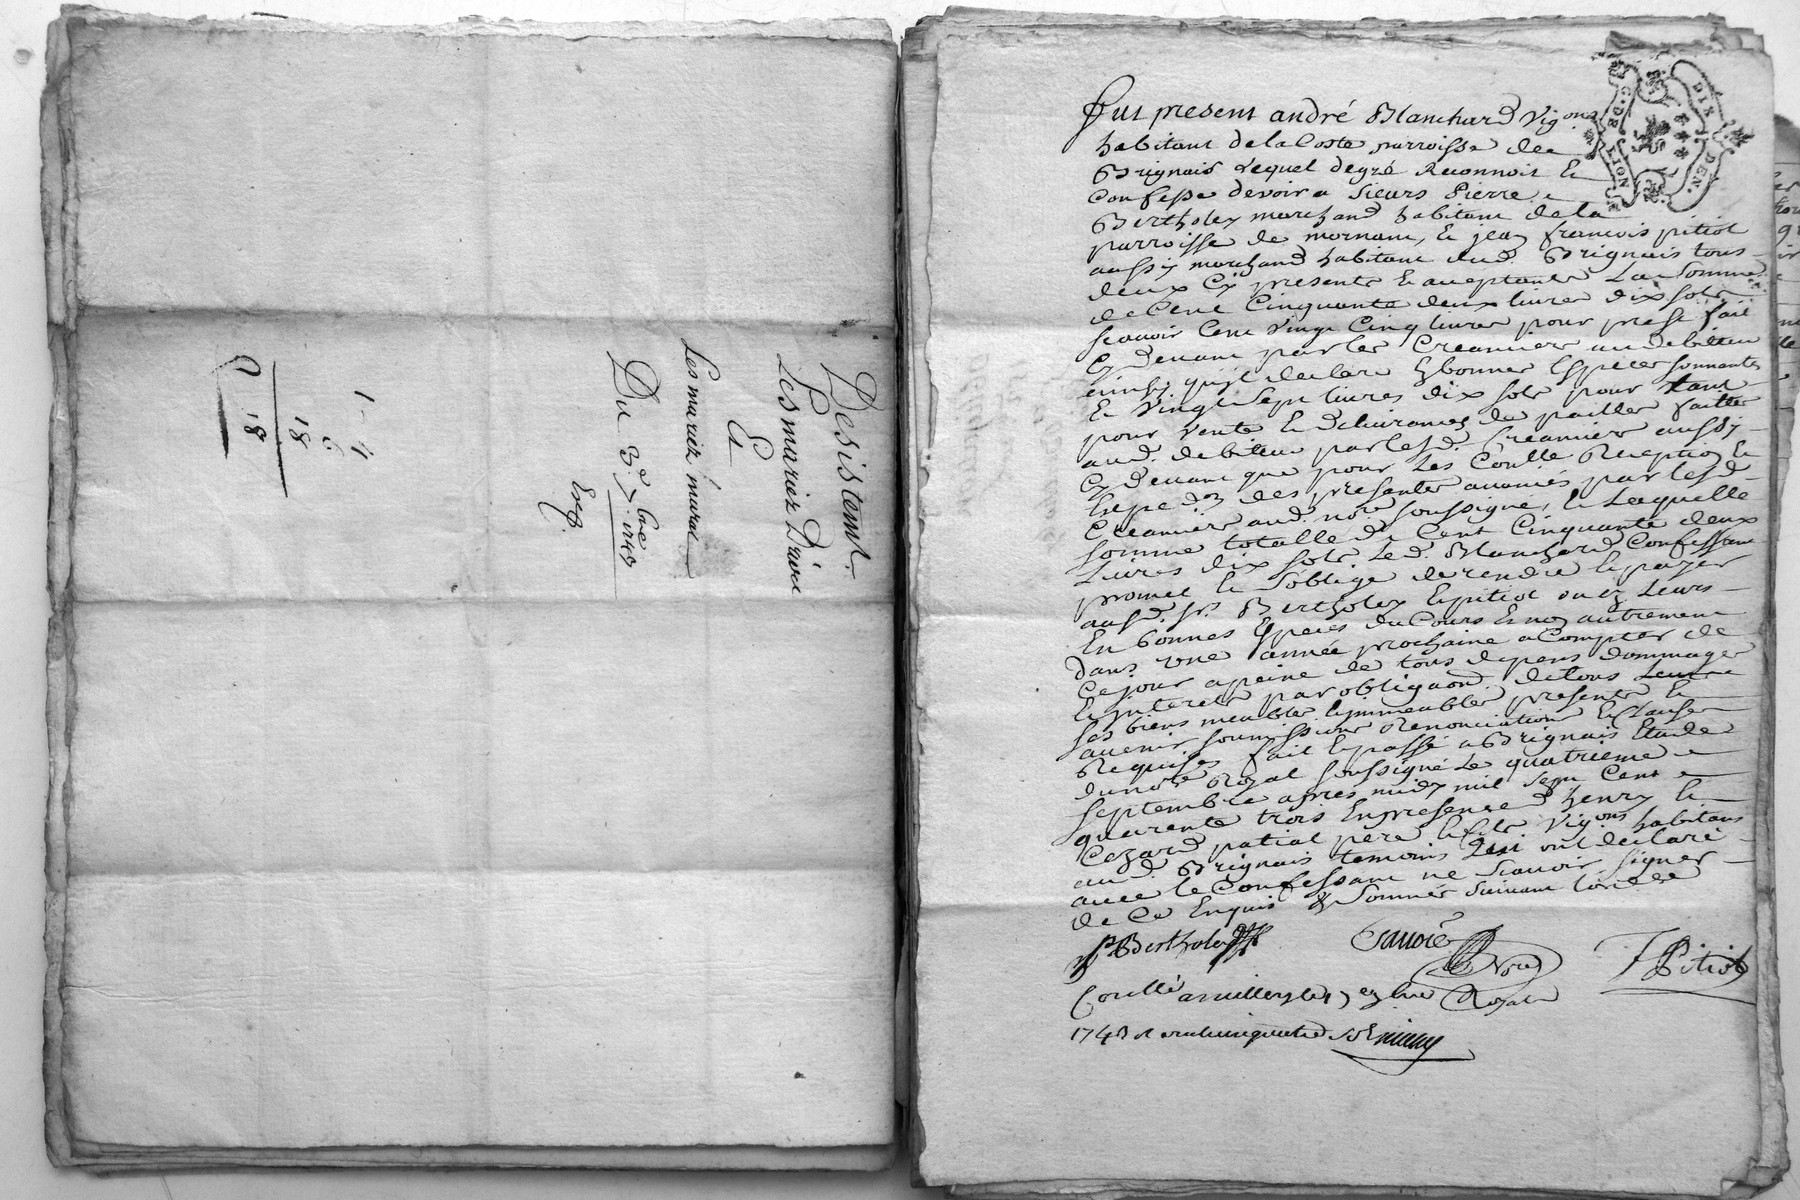 Desistemt.
Et
Les mariez
Et
Les mariez
Du 3e 7bre 1743
Exp.
1 - 4
6
18
Fut present andré Blanchard Vigon
habitant de la Coste parroisse de
Brignais Lequel degré Reconnoit Et
Confesse devoir a Sieurs Pierre
Bertholey marchand habitant de la
parroisse de mornant, Et jean françois pitiot
aussy marchand habitant dud. Brignais tous
deux Cy presents Et acceptants La Somme
de Cent Cinquante deux livres dix sols
scavoir Cent Vingt Cinq livres pour prest fait
Cy devant par les Creanciers au debiteur
ainsy qu'il declare En bonnes Especes sonnantes
Et Vingt Sept livres dix sols pour
pour Vente Et delivrance de faitte
aud. debiteur par lesd. Creanciers aussy
Cy devant que pour Les Coulle Reception Et
Expedon des presentes avancés par lesd.
Creanciers aud. nore soussigné, Et Laquelle
Somme totalle de Cent Cinquante deux
Livres dix sols Led. Blanchard Confessant
promet Et S'oblige de rendre Et payer
ausd. Srs. Bertholey Et pitiot ou es Leurs
En bonnes Especes du Cours Et non autrement
dans une année prochaine a Compter de
Ce jour a peine de tous depens dommages
Et interets par obligaon de tous
Ses biens meubles Et immeubles presents Et
avenir soumissions Renonciations Et Clauses
Requises fait Et passé a Brignais Etude
du nore Royal soussigné Le quatrieme
septembre apres midy mil sept Cent
quarante trois En presence d'henry Et
Cezard patial père Et fils Vigons habitans
aud. Brignais temoins Qui ont declaré
avec le Confessant ne Scavoir Signer
de Ce Enquis & Sommés Suivant l'ordce
P Bertholey
Nore
J Pitiot
Royal
1743